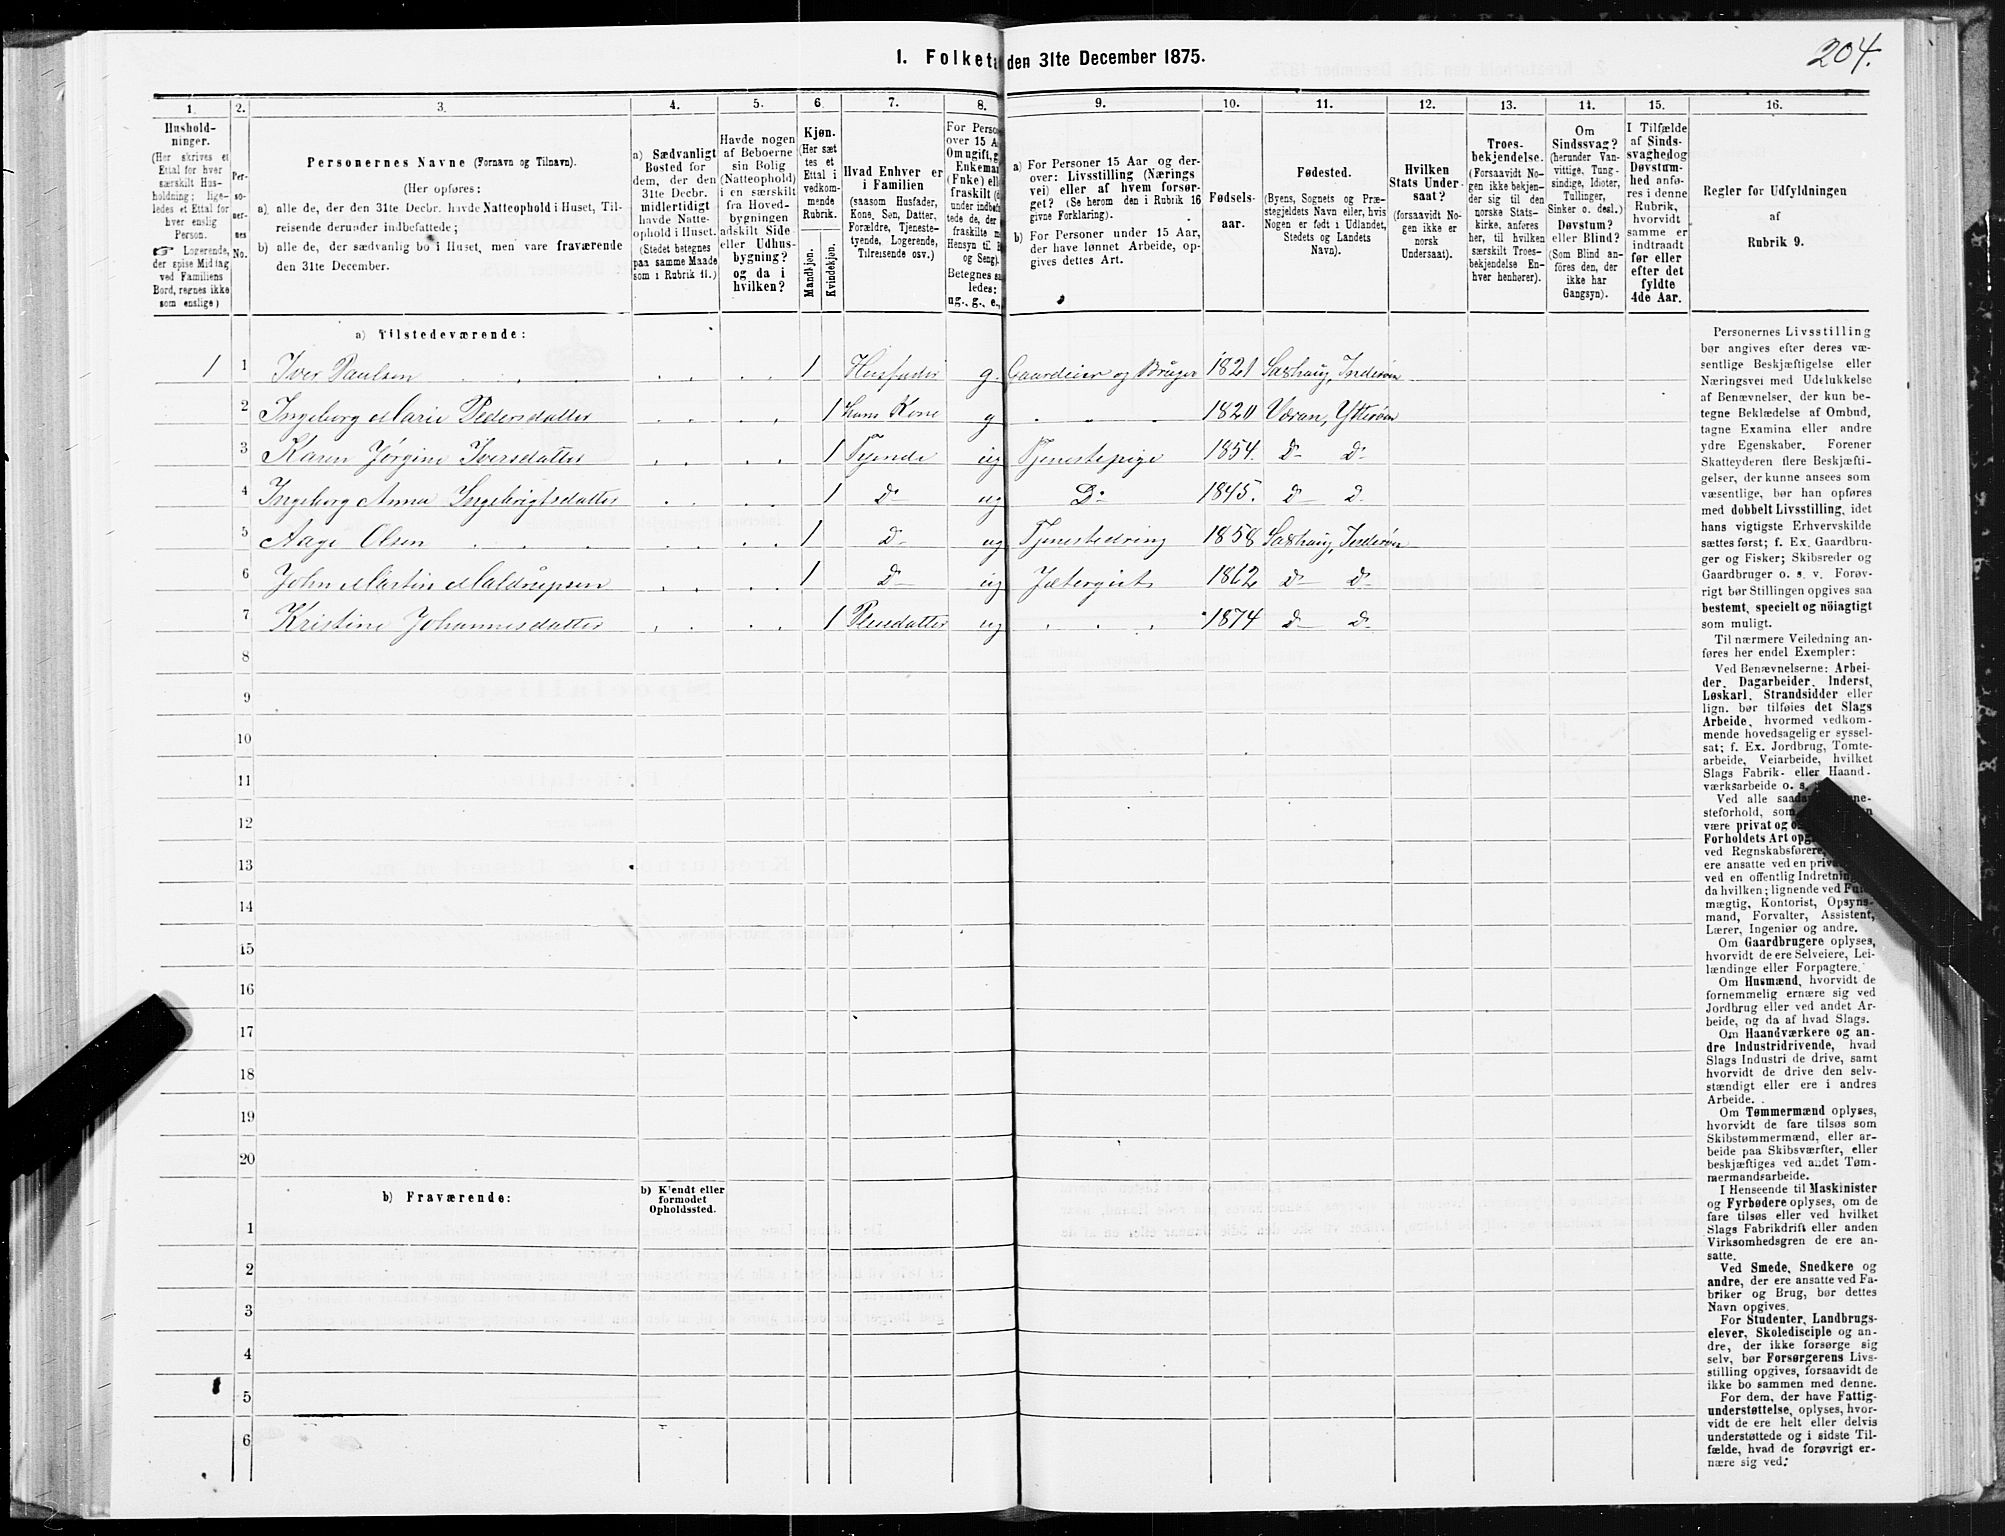 204.
1. Folketæ den 31te December 1875.
1. 2. 3. 4. 5. 6. 7. 8. 9. 10. 11. 12. 13. 14. 15. 16.
Hushold-
ninger.
(Her skrives et
Ettal for hver
særskilt Hus-
holdning; lige-
ledes et Ettal for
hver enslig
Person.
☞ Logerende,
der spise Middag
ved Familiens
Bord, regnes ikke
som enslige)
Per-
so-
ner-
nes
No.
Personernes Navne (Fornavn og Tilnavn).
(Her opføres:
a) alle de, der den 31te Decbr. havde Natteophold i Huset, Til-
reisende derunder indbefattede;
b) alle de, der sædvanlig bo i Huset, men vare fraværende
den 31te December.
a) Sædvanligt
Bosted for
dem, der den
31te Decbr.
midlertidigt
havde Natte-
ophold i Huset.
(Stedet betegnes
paa samme Maade
som i Rubrik 11.)
Havde nogen
af Beboerne
sin Bolig
(Natteophold)
i en særskilt
fra Hoved-
bygningen
adskilt Side-
eller Udhus-
bygning?
og da i
hvilken?
Kjøn.
(Her sæt
tes et
Ettal i
vedkom-
mende
Rubrik.
Mandkjøn.
Kvindekjøn.
Hvad Enhver er
i Familien
(saasom Husfader,
Kone, Søn, Datter,
Forældre, Tjeneste-
tyende, Logerende,
Tilreisende osv.)
For Person
over 15 A
Om ugift, g
Enkeman
(Enke) ell
fraskilt (i
under indbefat
tede de, der
fraskilte m
Hensyn til B
og Seng).
Betegnes sa
ledes:
ug., g., e.,
a) For Personer 15 Aar og der-
over: Livsstilling (Nærings
vei) eller af hvem forsør-
get? (Se herom den i Rubrik 16
givne Forklaring).
b) For Personer under 15 Aar,
der have lønnet Arbeide, op-
gives dettes Art.
Fødsels-
aar.
Fødested.
(Byens, Sognets og Præ-
stegjeldets Navn eller, hvis
Nogen er født i Udlandet,
Stedets og Landets
Navn).
Hvilken
Stats Under-
saat?
(forsaavidt No-
gen ikke er
norsk
Undersaat).
Troes-
bekjendelse.
(Forsaavidt No-
gen ikke bekjen-
der sig til den
norske Stats-
kirke, anføres
her, til hvilken
særskilt Troes-
bekjendelse En-
hver henhører).
Om
Sindssvag?
(herunder Van-
vittige, Tung-
sindige, Idioter,
Tullinger,
Sinker o. desl.)
Døvstum?
eller Blind?
(Som Blind an-
føres den, der
ikke har
Gangsyn).
I Tilfælde
af Sinds-
svaghed og
Døvstum-
hed anfø-
res i denne
Rubrik,
hvorvidt
samme er
indtraadt
før eller
efter det
fyldte
4de Aar.
Regler for Udfyldningen
af
Rubrik 9.
a) Tilstedeværende:
1 1 Iver Paulsen 1 Husfader g. Gaardeier og Bruger 1821 Saxhaug, Inderøen
2 Ingeborg Marie Pedersdatter 1 hans Kone g 1820 Væran, Ytterøen
3 Karen Jørgine Iversdatter 1 Tyende ug Tjenestepige 1854. D- D-
4 Ingeborg Anna Ingebrigtsdatter 1 D- ug D- 1845. D- D-
5 Aage Olsen 1 D- ug Tjenestedreng 1858 Saxhaug, Inderøen
6 John Martin 1 D- ug Jætergut 1862 D- D-
7 Kristine Johannesdatter 1 Pleiedatter ug 1874 D- D-
8
9
10
11
12
13
14
15
16
17
18
19
20
b) Fraværende: b) Kjendt eller
formodet
Opholdssted.
1
2
3
4
5
6
Personernes Livsstilling
bør angives efter deres væ-
sentlige Beskjæftigelse eller
Næringsvei med Udelukkelse
af Benævnelser, der kun be-
tegne Beklædelse af Ombud,
tagne Examina eller andre
ydre Egenskaber. Forener
Skatteyderen flere Beskjæfti-
gelser, der kunne ansees som
væsentlige, bør han opføres
med dobbelt Livsstilling, idet
hans vigtigste Erhvervskilde
sættes først; f. Ex. Gaardbru-
ger og Fisker; Skibsreder og
Gaardbruger o. s. v. Forøv-
rigt bør Stillingen opgives saa
bestemt, specielt og nöiagtigt
som muligt.
Til nærmere Veiledning an-
føres her endel Exempler:
Ved Benævnelserne: Arbei-
der, Dagarbeider, Inderst,
Løskarl, Strandsidder eller
lign. bør tilføies det Slags
Arbeide, hvormed vedkom-
mende hovedsagelig er syssel-
sat; f. Ex. Jordbrug, Tomte-
arbeide, Veiarbeide, hvilket
Slags Fabrik- eller Haand-
værksarbeide o. s.
Ved alle
steforhold, som
være privat og
Forholdets Art
ved Regnskabsførere,
ere ansatte ved en
ved en offentlig Indretning
da hvilken; lignende ved
mægtig, Kontorist, Opsyns-
mand, Forvalter, Assistent,
Lærer, Ingeniør og andre.
Om Gaardbrugere oplyses,
hvorvidt de ere Selveiere, Lei-
lændinge eller Forpagtere.
Om Husmænd, hvorvidt de
fornemmelig ernære sig ved
Jordbrug eller ved andet Ar-
beide, og da af hvad Slags.
Om Haandværkere og an-
dre Industridrivende, hvad
Slags Industri de drive, samt
hvorvidt de drive den selv-
stændigt eller ere i andres
Arbeide.
Om Tømmermænd oplyses,
hvorvidt de fare tilsøs som
Skibstømmermænd, eller ar-
beide paa Skibsværfter, eller
beskjæftiges ved andet Tøm-
mermandsarbeide.
I Henseende til Maskinister
og Fyrbødere oplyses, om de
fare tilsøs eller ved hvilket
Slags Fabrikdrift eller anden
Virksomhedsgren de ere an-
satte.
Ved Smede, Snedkere og
andre, der ere ansatte ved Fa-
briker og Brug, bør dettes
Navn opgives.
For Studenter, Landbrugs-
elever, Skoledisciple og an-
dre, der ikke forsørge sig
selv, bør Forsørgerens Livs-
stilling opgives, forsaavidt de
ikke bo sammen med denne.
For dem, der have Fattig-
understøttelse, oplyses, hvor-
vidt de ere helt eller delvis
understøttede og i sidste Til-
fælde, hvad de forøvrigt er-
nære sig ved.